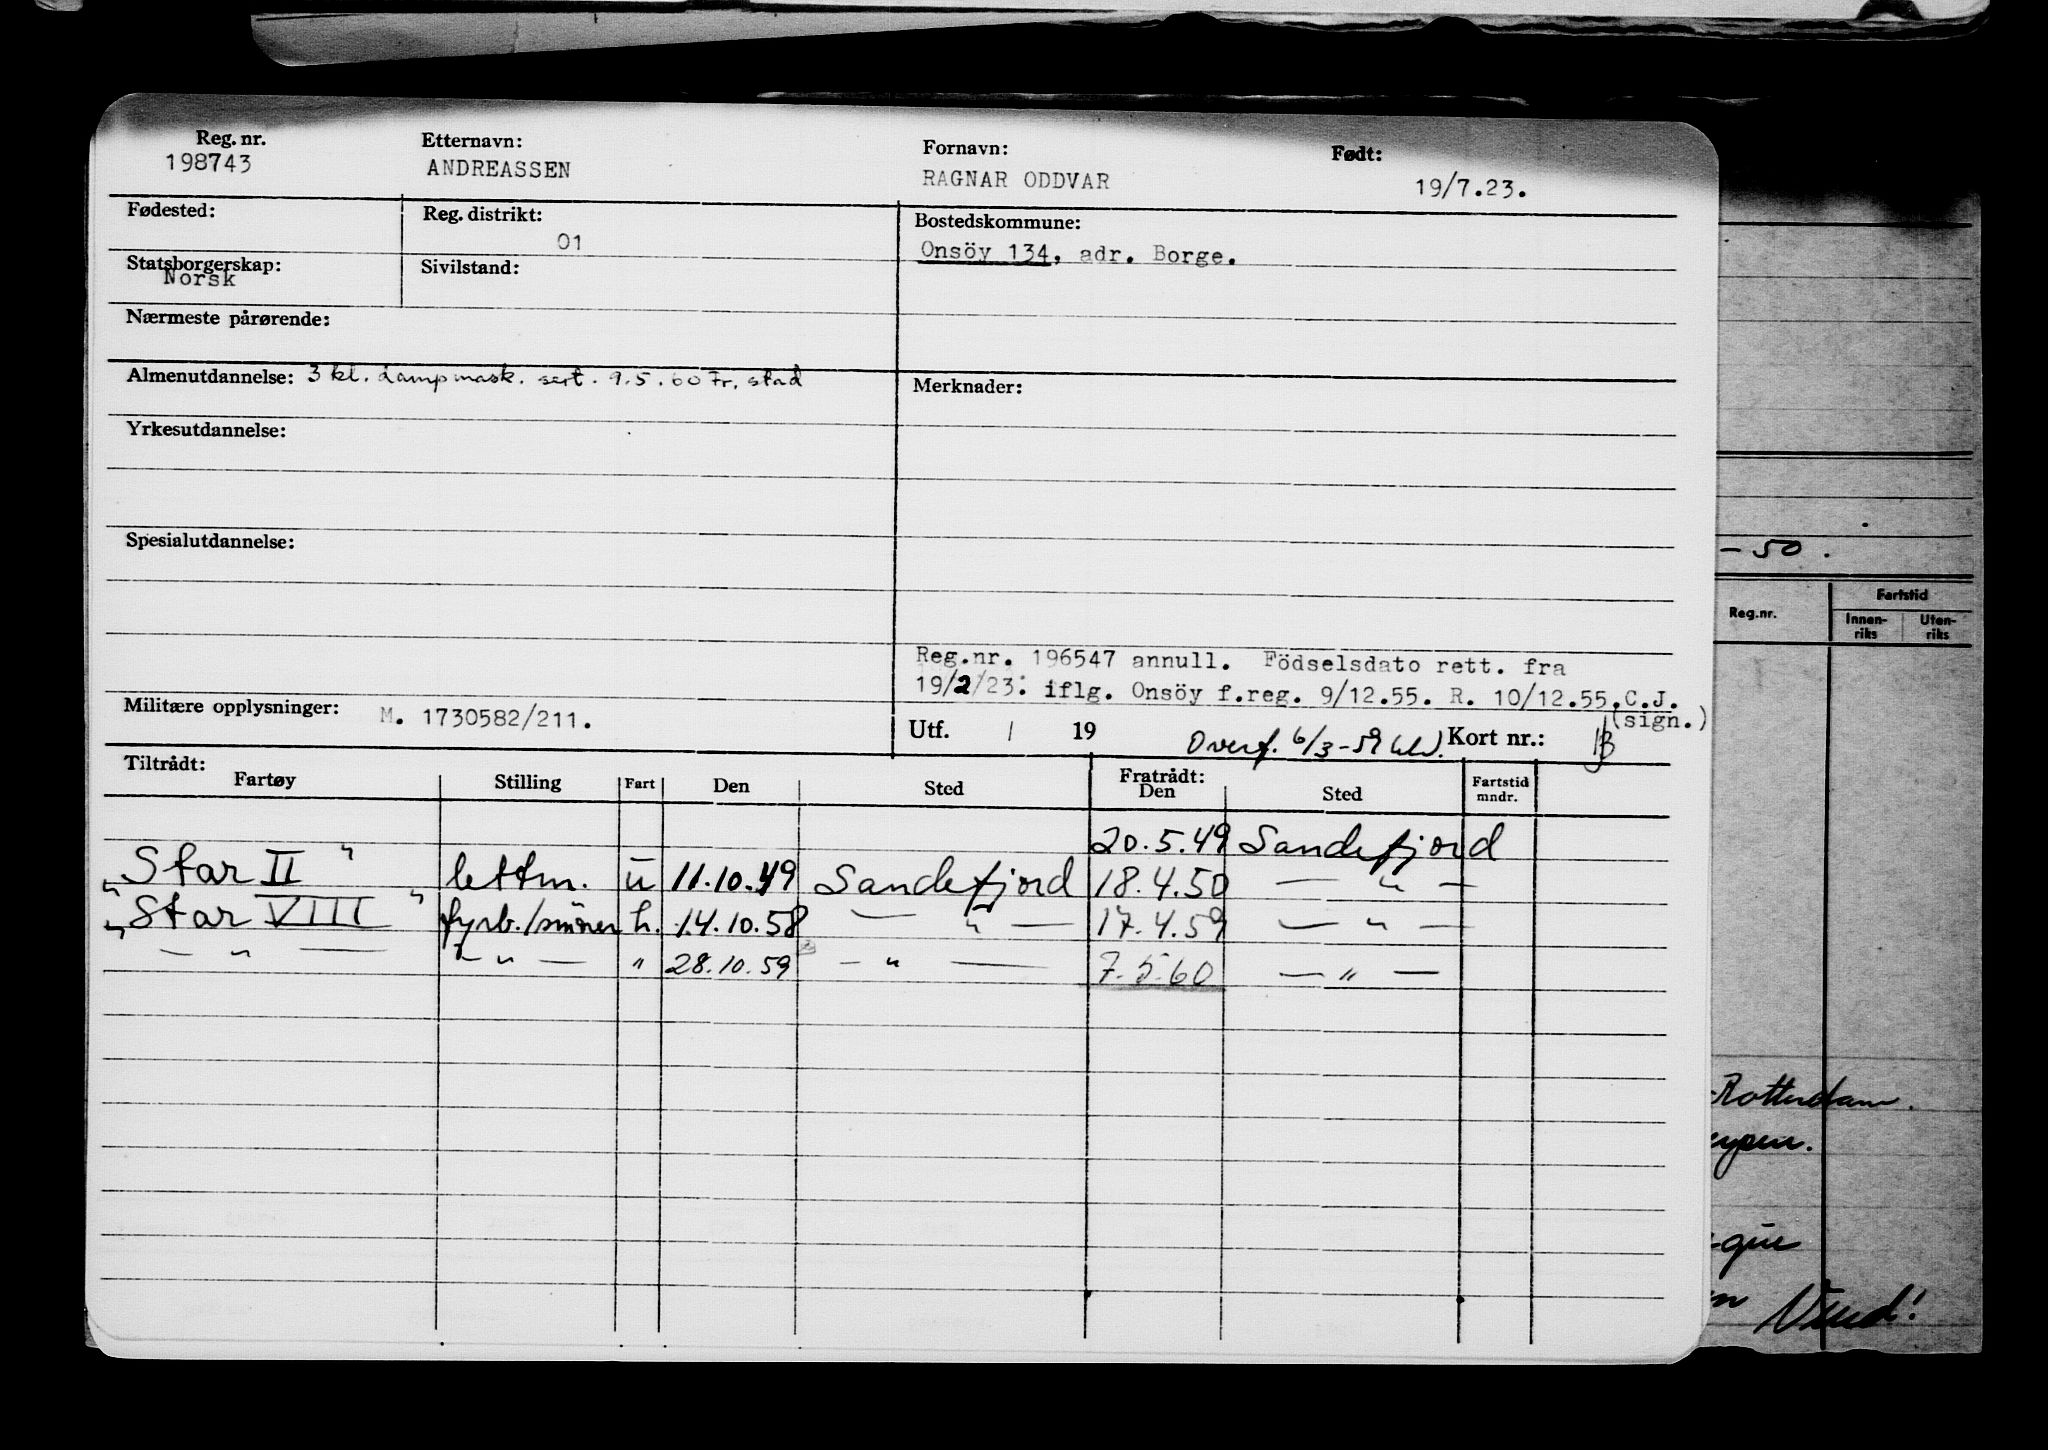 Reg. nr. Etternavn: Fornavn: Født:
198743 ANDREASSEN RAGNAR ODDVAR 19/7.23.
Fødested: Reg. distrikt: Bostedskommune:
01 Onsöy 134, adr. Borge.
Statsborgerskap: Sivilstand:
Norsk
Nærmeste pårørende:
Almenutdannelse: 3 kl. dampmask. sert. 9.5.60 Fr. stad Merknader:
Yrkesutdannelse:
Spesialutdannelse:
Reg.nr. 196547 annull. Födselsdato rett. fra
19/2/23: iflg. Onsöy f.reg. 9/12.55. R. 10/12.55. C.J.
(sign.)
Militære opplysninger: M. 1730582/211.
Utf. / 19 Overf. 6/3-59 Kort nr.:
Tiltrådt: Fratrådt:
Fartøy Stilling Fart Den Sted Den Sted Fartstid mndr.
20.5.49 Sandefjord
"Star II" lettm. u 11.10.49 Sandefjord 18.4.50 — " —
"Star VIII" fyrb./smörer h. 14.10.58 — " — 17.4.59 — " —
— " — — " — " 28.10.59 — " — 7.5.60 — " —
- 50.
Reg.nr. Fartstid
Innen-riks Uten-riks
Rotterdam.
Vend!